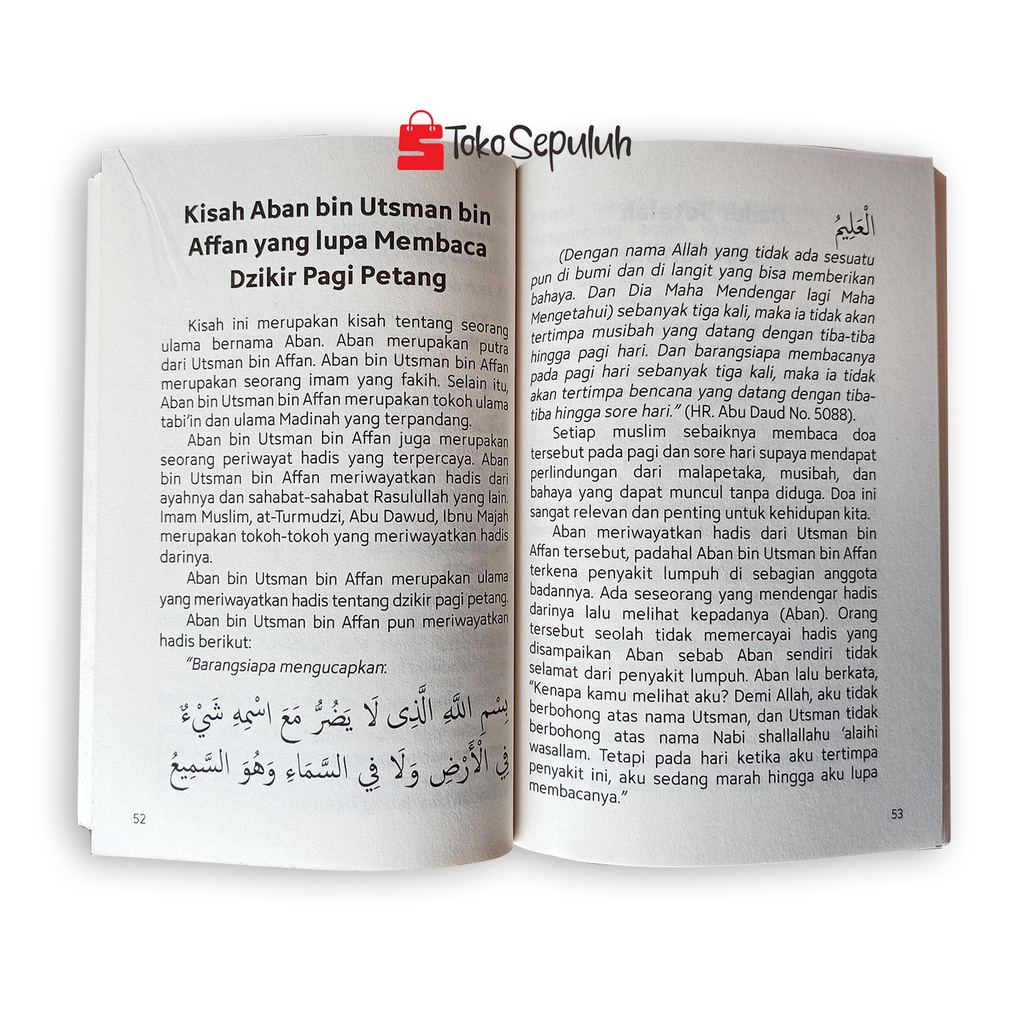 Toko Sepuluh
Kisah Aban bin Utsman bin
Affan yang lupa Membaca
Dzikir Pagi Petang
Kisah ini merupakan kisah tentang seorang
ulama bernama Aban. Aban merupakan putra
dari Utsman bin Affan. Aban bin Utsman bin Affan
merupakan seorang imam yang fakih. Selain itu,
Aban bin Utsman bin Affan merupakan tokoh ulama
tabi'in dan ulama Madinah yang terpandang.
Aban bin Utsman bin Affan juga merupakan
seorang periwayat hadis yang terpercaya. Aban
bin Utsman bin Affan meriwayatkan hadis dari
ayahnya dan sahabat-sahabat Rasulullah yang lain.
Imam Muslim, at-Turmudzi, Abu Dawud, Ibnu Majah
merupakan tokoh-tokoh yang meriwayatkan hadis
darinya.
Aban bin Utsman bin Affan merupakan ulama
yang meriwayatkan hadis tentang dzikir pagi petang.
Aban bin Utsman bin Affan pun meriwayatkan
hadis berikut:
"Barangsiapa mengucapkan:
بِسْمِ اللَّهِ الَّذِى لَا يَضُرُّ مَعَ اسْمِهِ شَيْءٌ
فِي الْأَرْضِ وَلَا فِي السَّمَاءِ وَهُوَ السَّمِيعُ
52
الْعَلِيمُ
(Dengan nama Allah yang tidak ada sesuatu
pun di bumi dan di langit yang bisa memberikan
bahaya. Dan Dia Maha Mendengar lagi Maha
Mengetahui) sebanyak tiga kali, maka ia tidak akan
tertimpa musibah yang datang dengan tiba-tiba
hingga pagi hari. Dan barangsiapa membacanya
pada pagi hari sebanyak tiga kali, maka ia tidak
akan tertimpa bencana yang datang dengan tiba-
tiba hingga sore hari." (HR. Abu Daud No. 5088).
Setiap muslim sebaiknya membaca doa
tersebut pada pagi dan sore hari supaya mendapat
perlindungan dari malapetaka, musibah, dan
bahaya yang dapat muncul tanpa diduga. Doa ini
sangat relevan dan penting untuk kehidupan kita.
Aban meriwayatkan hadis dari Utsman bin
Affan tersebut, padahal Aban bin Utsman bin Affan
terkena penyakit lumpuh di sebagian anggota
badannya. Ada seseorang yang mendengar hadis
darinya lalu melihat kepadanya (Aban). Orang
tersebut seolah tidak memercayai hadis yang
disampaikan Aban sebab Aban sendiri tidak
selamat dari penyakit lumpuh. Aban lalu berkata,
"Kenapa kamu melihat aku? Demi Allah, aku tidak
berbohong atas nama Utsman, dan Utsman tidak
berbohong atas nama Nabi shallallahu 'alaihi
wasallam. Tetapi pada hari ketika aku tertimpa
penyakit ini, aku sedang marah hingga aku lupa
membacanya."
53